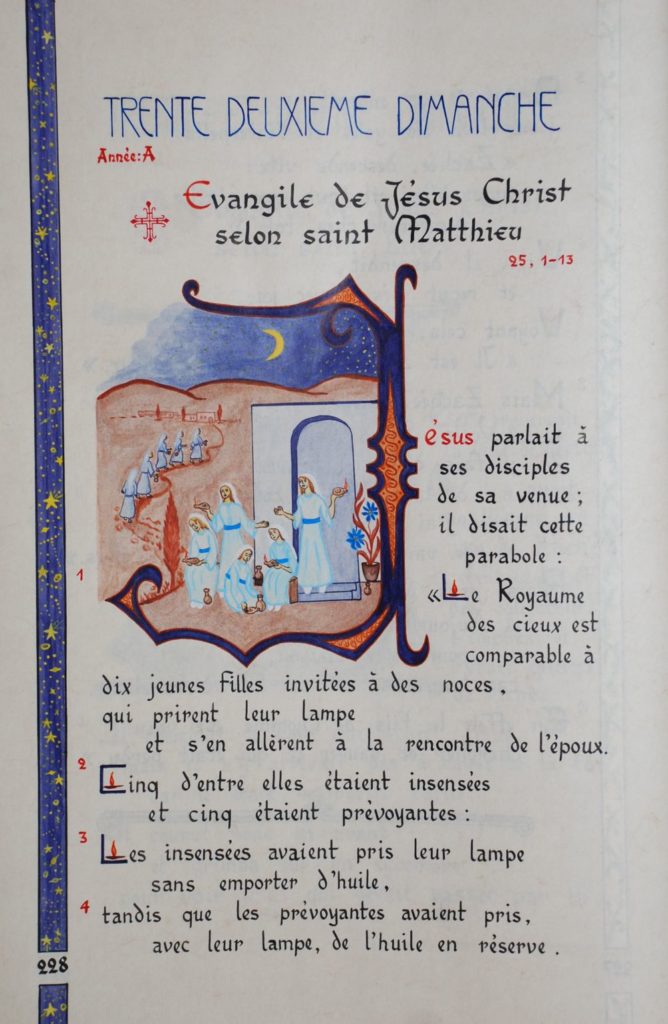 TRENTE DEUXIEME DIMANCHE
Année:A
Evangile de Jésus Christ
selon saint Matthieu
25, 1-13
Jésus parlait à
ses disciples
de sa venue ;
il disait cette
parabole :
1
«Le Royaume
des cieux est
comparable à
dix jeunes filles invitées à des noces,
qui prirent leur lampe
et s'en allèrent à la rencontre de l'époux.
2
Cinq d'entre elles étaient insensées
et cinq étaient prévoyantes :
3
Les insensées avaient pris leur lampe
sans emporter d'huile,
4
tandis que les prévoyantes avaient pris,
avec leur lampe, de l'huile en réserve.
228